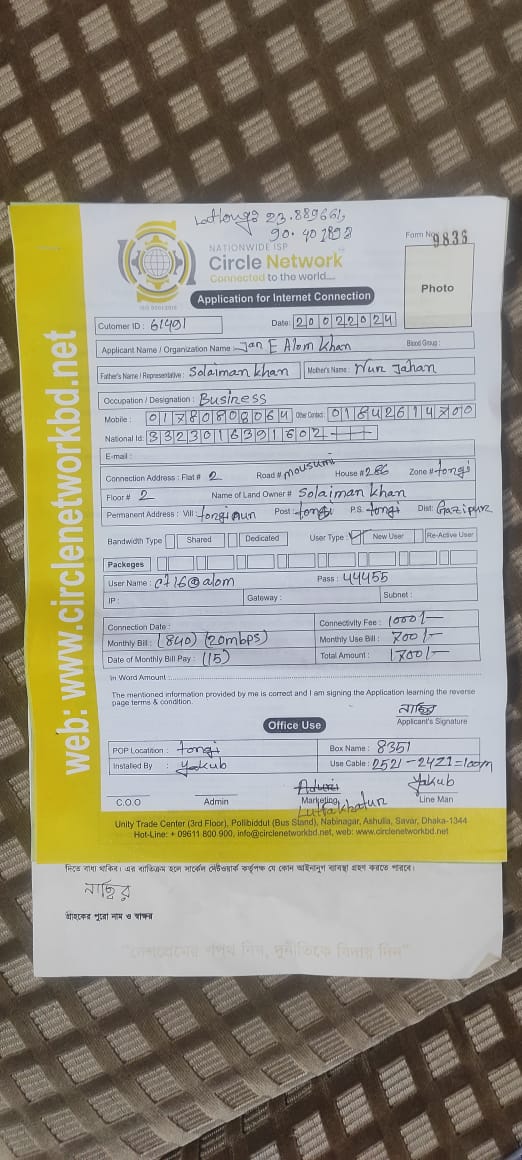 Latlong: 23.889661,
90.401898
NATIONWIDE ISP
Circle Network
Connected to the world....
ISO 9001:2015
Form No. 9836
Application for Internet Connection
Photo
Cutomer ID : 61491
Date: 20022024
Applicant Name / Organization Name : Jan E Alom Khan Blood Group :
Father's Name / Representative : Solaiman khan Mother's Name : Nur Jahan
Occupation / Designation : Business
Mobile : 01780808064 Othe Contact: 01642614700
National Id: 3323016391602
E-mail :
Connection Address : Flat # 2 Road # mousumi House # 286 Zone # tongi
Floor # 2 Name of Land Owner # Solaiman khan
Permanent Address : Vill : Post : tongi P.S. tongi Dist: Gazipur
Bandwidth Type Shared Dedicated User Type : New User Re-Active User
Packeges
User Name : c716@alom Pass : 44455
IP : Gateway : Subnet :
Connection Date : Connectivity Fee : 1000/-
Monthly Bill : (840) (20mbps) Monthly Use Bill : 700/-
Date of Monthly Bill Pay : (15) Total Amount : 1700/-
In Word Amount
The mentioned information provided by me is correct and I am signing the Application learning the reverse
page terms & condition.
Applicant's Signature
Office Use
POP Locatition : tongi Box Name : 8351
Installed By : Yakub Use Cable : 2521-2421=100m
Yakub
C.O.O Admin Marketing Line Man
Unity Trade Center (3rd Floor), Pollibiddut (Bus Stand), Nabinagar, Ashulia, Savar, Dhaka-1344
Hot-Line: + 09611 800 900, info@circlenetworkbd.net, web: www.circlenetworkbd.net
web: www.circlenetworkbd.net
দিতে বাধ্য থাকিব। এর ব্যতিক্রম হলে সার্কেল নেটওয়ার্ক কর্তৃপক্ষ যে কোন আইনানুগ ব্যবস্থা গ্রহণ করতে পারবে।
গ্রাহকের পুরো নাম ও স্বাক্ষর
"দেশপ্রেমের শপথ নিন, দুর্নীতিকে বিদায় দিন"